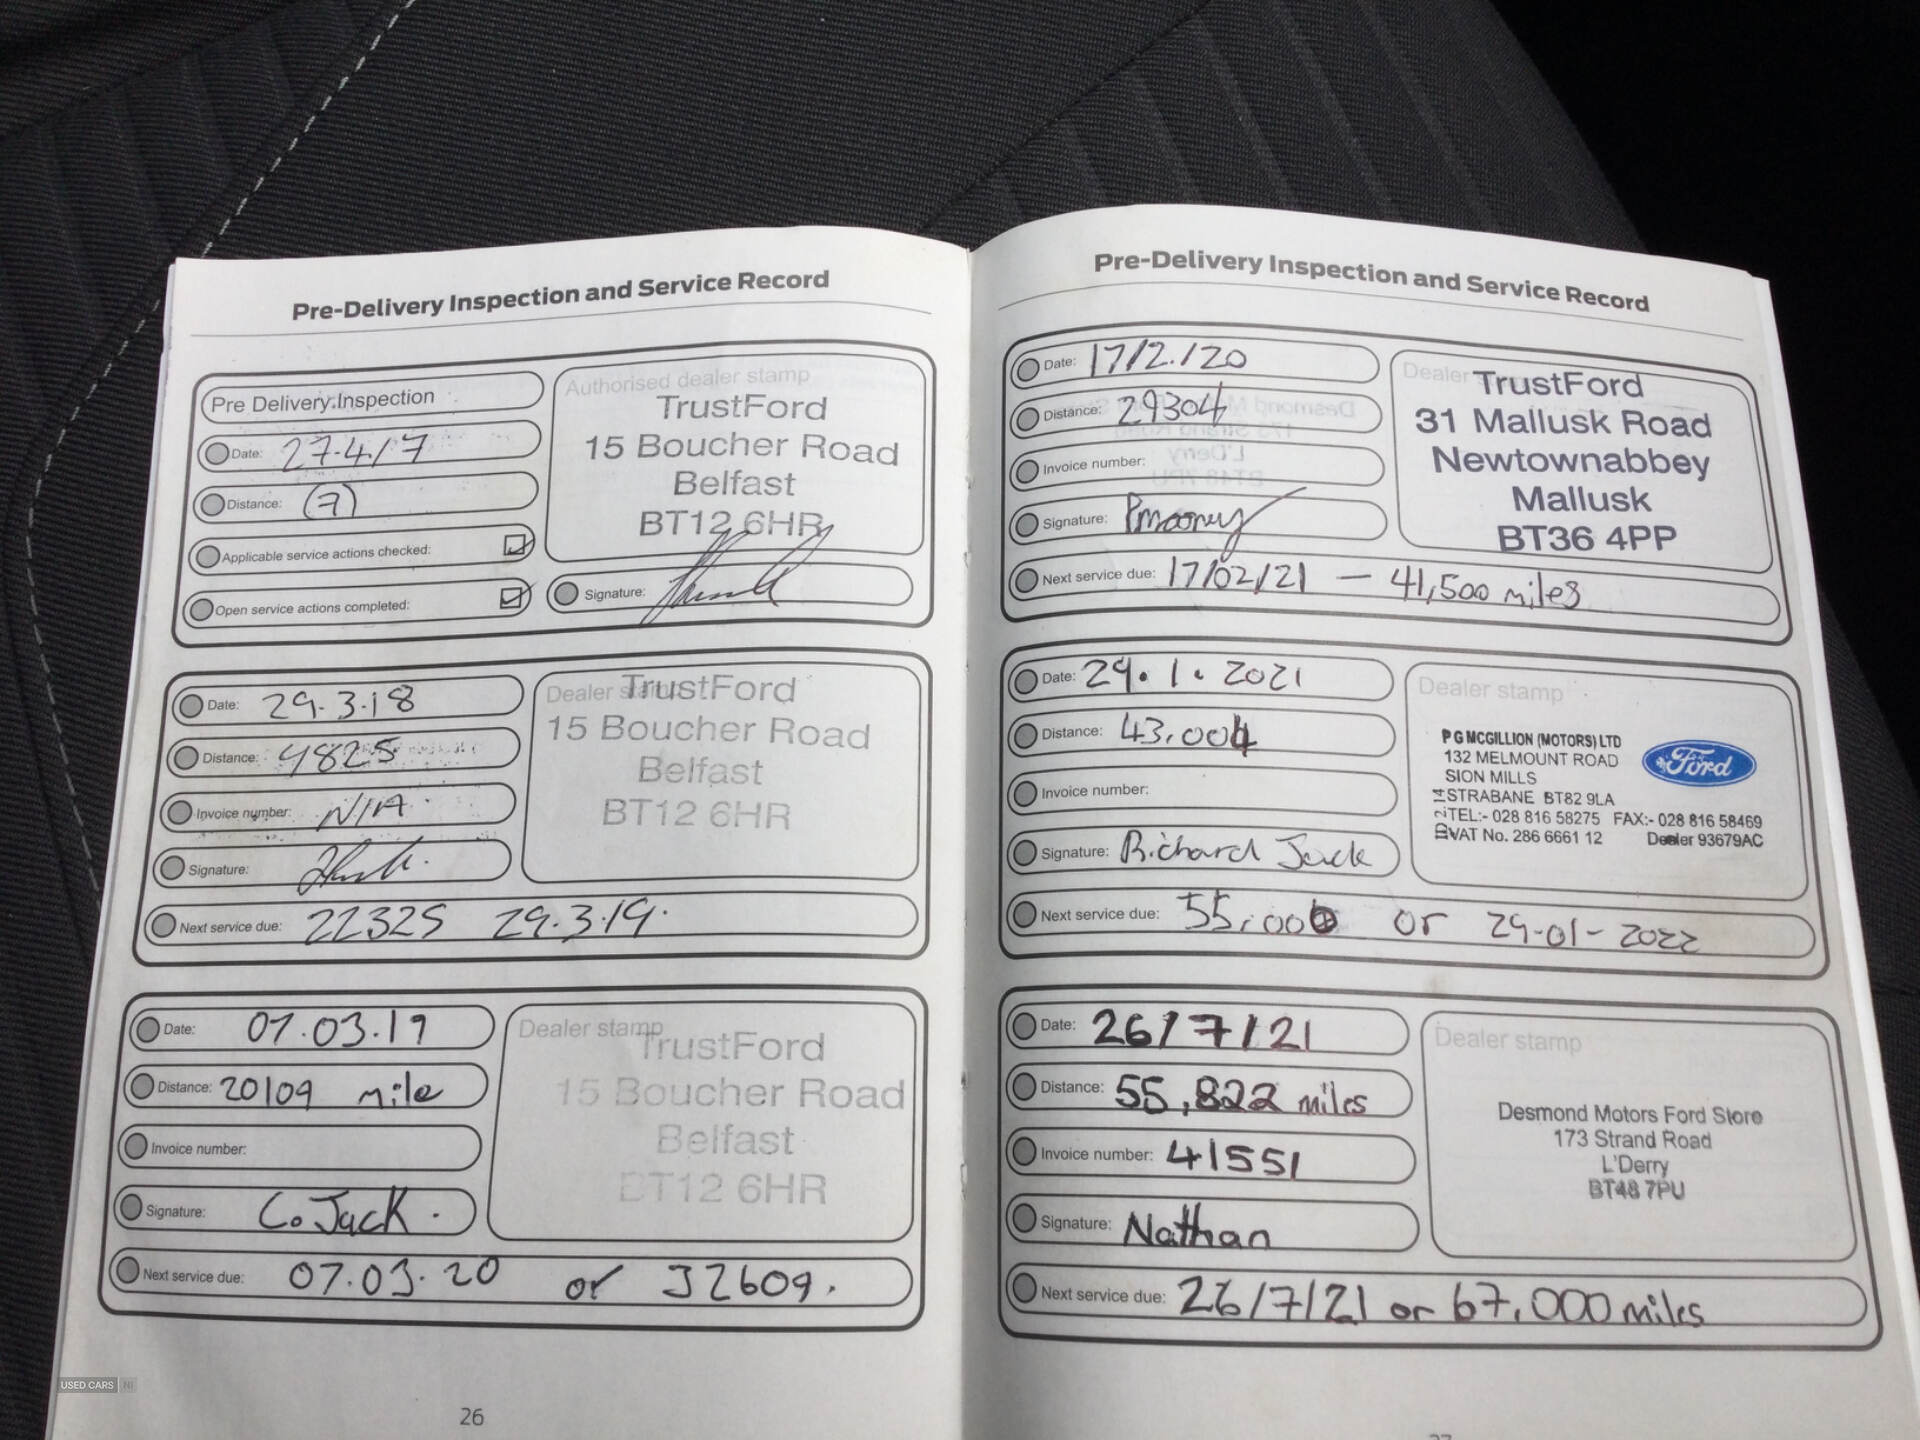 Pre-Delivery Inspection and Service Record
Pre Delivery Inspection
Date: 27.4/7
Distance: (7)
Applicable service actions checked:
Open service actions completed:
Authorised dealer stamp
TrustFord
15 Boucher Road
Belfast
BT12 6HR
Signature:
Date: 29.3.18
Distance: 9825
Invoice number: N/A
Signature:
Next service due: 22325 29.3.19.
Dealer stamp
TrustFord
15 Boucher Road
Belfast
BT12 6HR
Date: 07.03.19
Distance: 20109 mile
Invoice number:
Signature: C. Jack.
Next service due: 07.03.20 or 32609.
Dealer stamp
TrustFord
15 Boucher Road
Belfast
BT12 6HR
26
USED CARS NI
Pre-Delivery Inspection and Service Record
Date: 17/2/20
Distance: 29304
Invoice number:
Signature: Pmooney
Next service due: 17/02/21 – 41,500 miles
Dealer
TrustFord
31 Mallusk Road
Newtownabbey
Mallusk
BT36 4PP
Date: 29.1.2021
Distance: 43,004
Invoice number:
Signature: Richard Jack
Next service due: 55,000 or 29-01-2022
Dealer stamp
P G MCGILLION (MOTORS) LTD
132 MELMOUNT ROAD
SION MILLS
STRABANE BT82 9LA
TEL:- 028 816 58275 FAX:- 028 816 58469
VAT No. 286 6661 12 Dealer 93679AC
Ford
Date: 26/7/21
Distance: 55,822 miles
Invoice number: 41551
Signature: Nathan
Next service due: 26/7/21 or 67,000 miles
Dealer stamp
Desmond Motors Ford Store
173 Strand Road
L'Derry
BT48 7PU